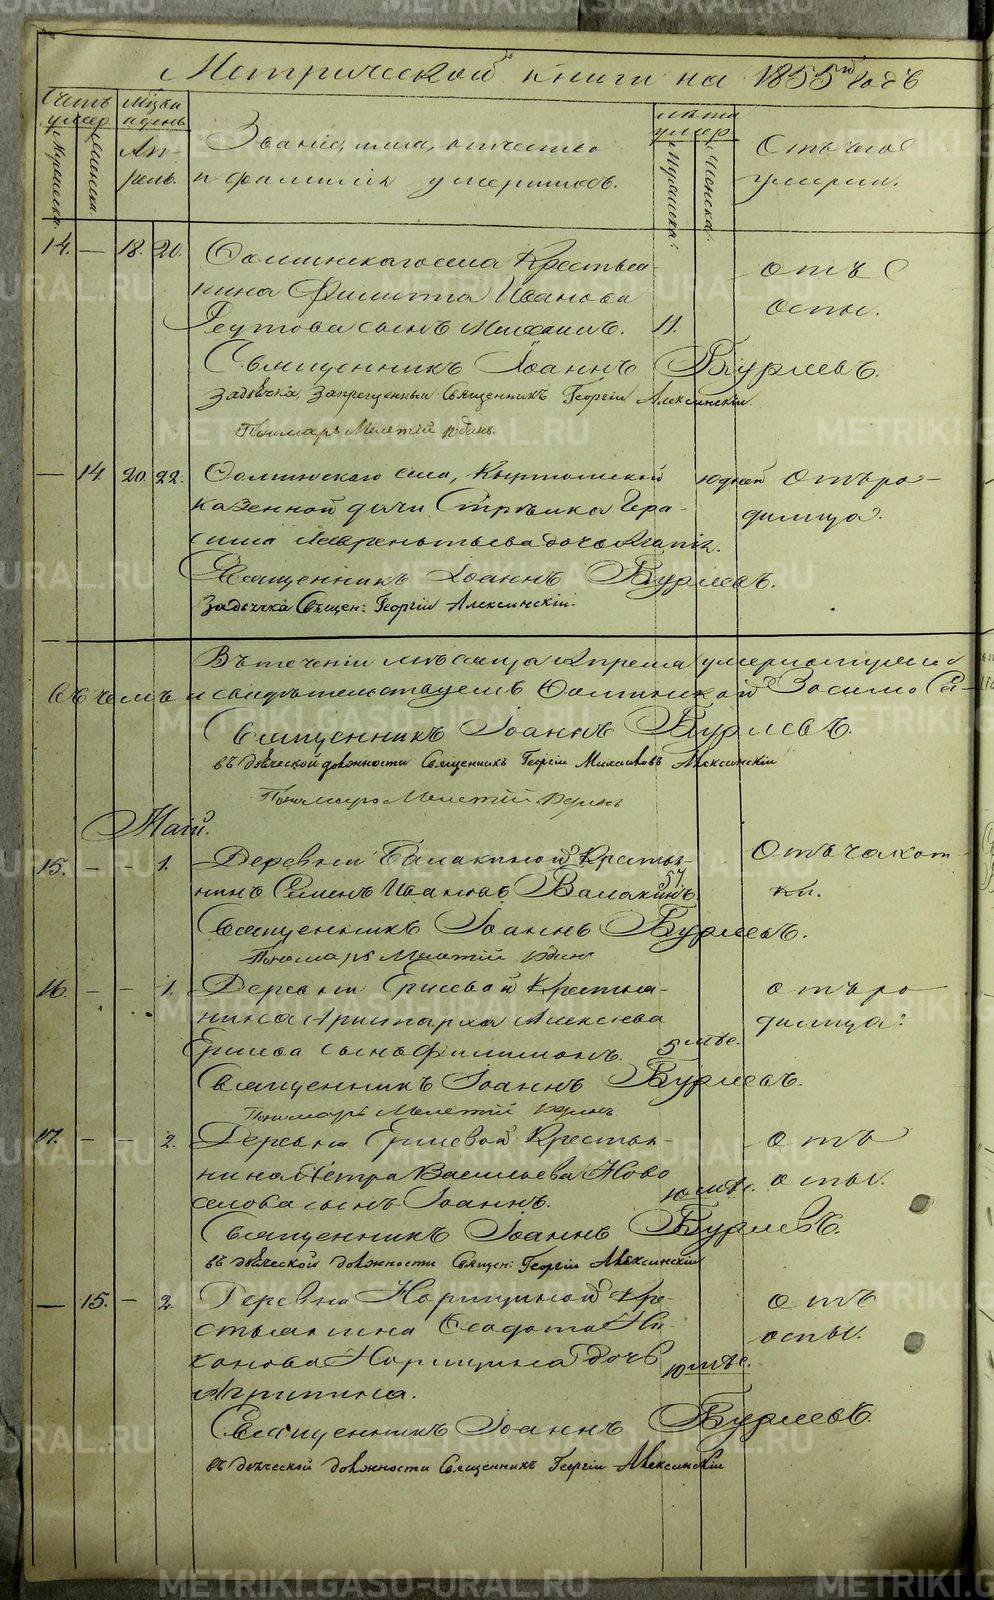 Метрической книги на 1855й годъ
Счетъ умер.
Мужеска.
Женска
Мѣсяц и день
Ап-
рель.
Званіе, имя, отчество
и фамилія умершихъ.
Лѣта умер.
Мужеска.
Женска.
Отъ чего
умерли.
14. — 18. 20. села Крестья-
нина Филиппа Иванова
сынъ Михаилъ. 11.
отъ
оспы.
Священникъ Іоаннъ Бурлевъ.
Задьячка, Запрещенный Священникъ Георгій Алексинскій.
Пономарь Мелетій
— 14. 20. 22. села,
казенной дачи Стрѣлка Гера-
сима Лаврентьева дочь Агапія.
10 дней
Отъ ро-
димца.
Священникъ Іоаннъ Бурлевъ.
Задьячка Священ: Георгій Алексинскій.
Въ теченіи мѣсяца Апреля умерло
въ чемъ и свидѣтельствуемъ
Священникъ Іоаннъ Бурлевъ.
въ дьяческой должности Священникъ Георгій Михайловъ Алексинскій
Пономарь Мелетій
Май.
15. — — 1. Деревни Балакиной Крестья-
нинъ Семенъ Ивановъ Балакинъ. 57
Отъ чахот-
ки.
Священникъ Іоаннъ Бурлевъ.
Пономарь Мелетій
16. — — 1. Деревни Ершевой Крестья-
нина Аристарха Алексѣева
Ершева сынъ Филимонъ. 5 мѣс.
отъ ро
димца.
Священникъ Іоаннъ Бурлевъ.
Пономарь Мелетій
17. — — 2. Деревни Ершевой Крестья-
нина Петра Васильева Ново
селова сынъ Іоаннъ. 10 мѣс.
отъ
оспы.
Священникъ Іоаннъ Бурлевъ.
въ дьяческой должности Священ: Георгій Алексинскій
— 15. — 2. Деревни Норициной Кре-
стьянина Феодота Ни-
канова Норицина дочь
Агрипина.
10 мѣс.
отъ
оспы.
Священникъ Іоаннъ Бурлевъ.
въ дьяческой должности Священникъ Георгій Алексинскій
METRIKI.GASO-URAL.RU